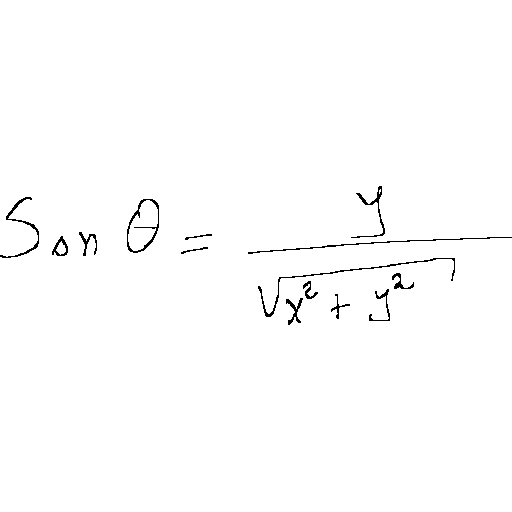 Son θ = y / √(x² + y²)